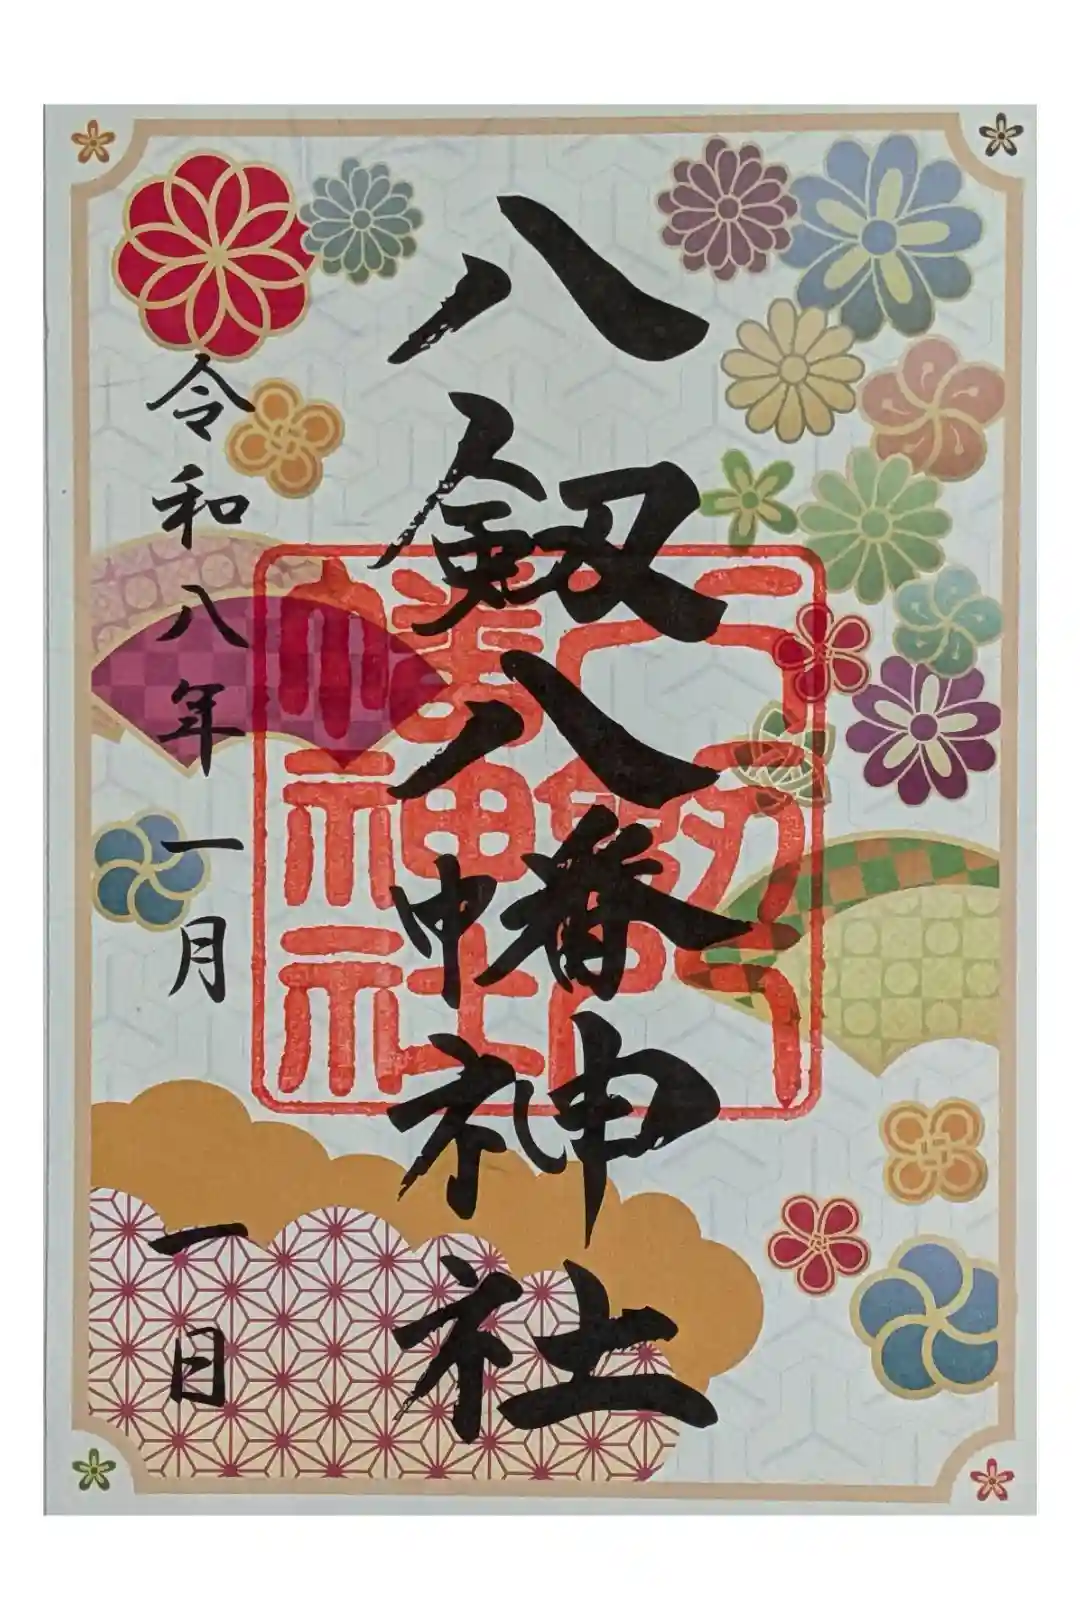 八剱八幡神社
八剱八
幡神社
令和八年一月一日